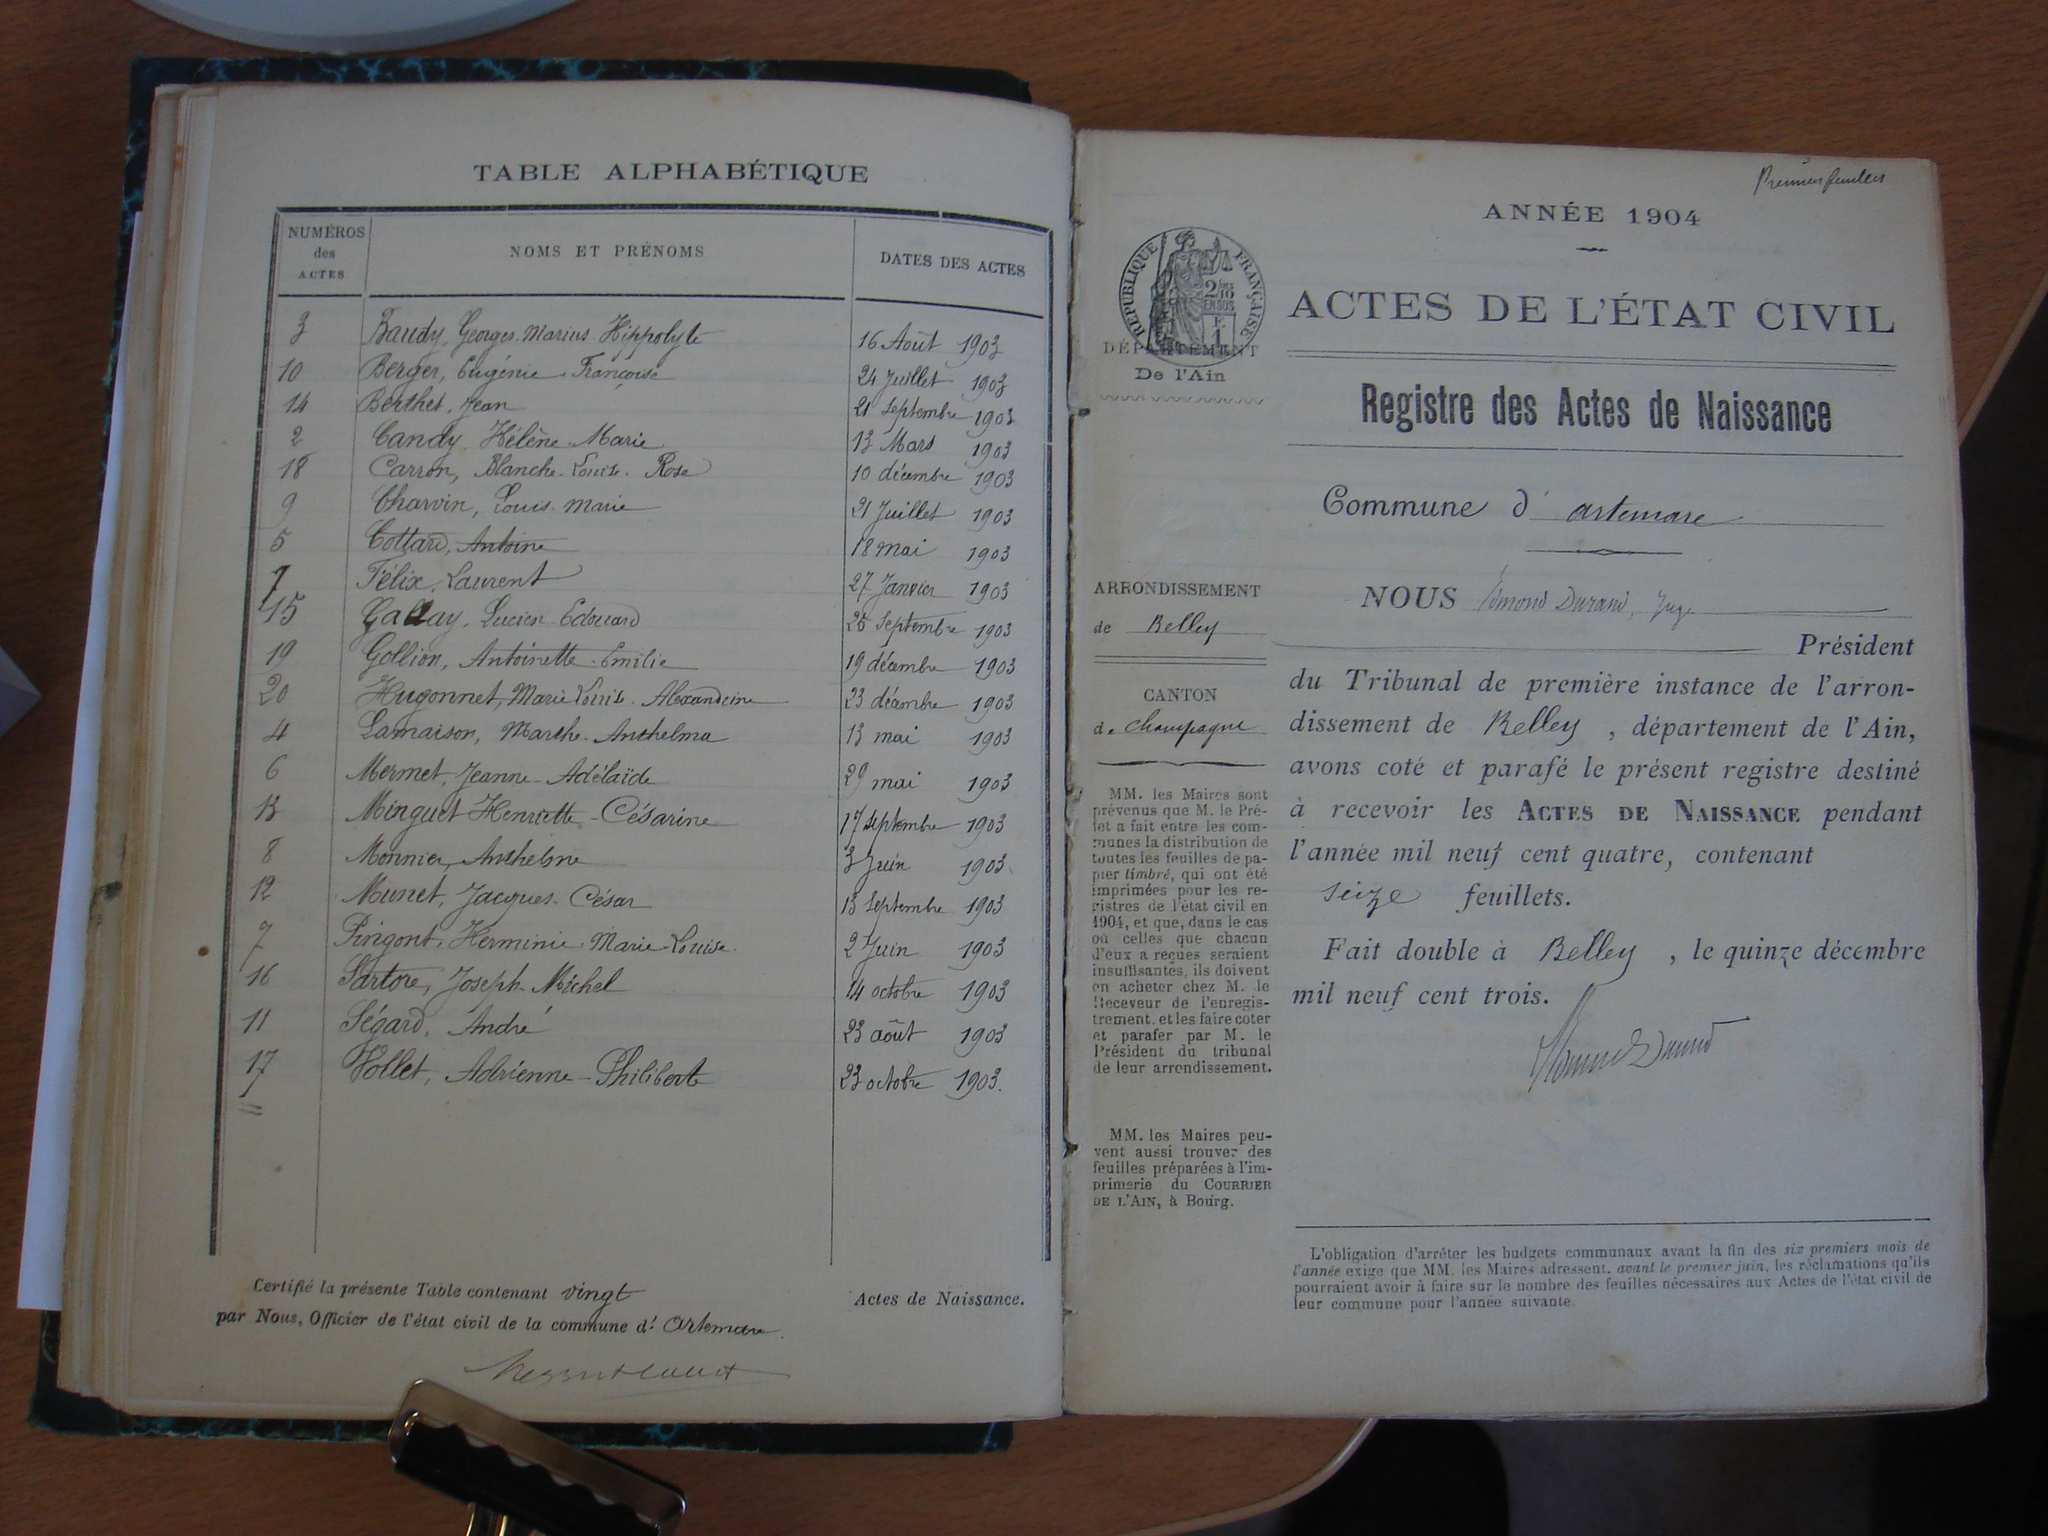 TABLE ALPHABÉTIQUE
NUMÉROS des ACTES NOMS ET PRÉNOMS DATES DES ACTES
3 Baudy, Georges-Marius-Hippolyte 16 Août 1903
10 Berger, Eugénie-Françoise 24 Juillet 1903
14 Berthet, Jean 21 Septembre 1903
2 Candy, Hélène-Marie 13 Mars 1903
18 Carron, Blanche-Louise-Rose 10 décembre 1903
9 Charvin, Louis-Marie 21 Juillet 1903
5 Cottard, Antoine 18 mai 1903
1 Félix, Laurent 27 Janvier 1903
15 Gallay, Lucien-Edouard 25 Septembre 1903
19 Gollion, Antoinette-Emilie 19 décembre 1903
20 Hugonnet, Marie Louise-Alexandrine 23 décembre 1903
4 Lamaison, Marthe-Anthelma 13 mai 1903
6 Mermet, Jeanne-Adélaïde 29 mai 1903
13 Minguet Henriette-Césarine 17 septembre 1903
8 Monnier, Anthelme 3 Juin 1903
12 Munet, Jacques-César 13 Septembre 1903
7 Pingont, Herminie-Marie-Louise 2 Juin 1903
16 Sartore, Joseph-Michel 14 octobre 1903
11 Ségard, André 23 août 1903
17 Vollet, Adrienne-Philiberte 23 octobre 1903.
Certifié la présente Table contenant vingt Actes de Naissance.
par Nous, Officier de l'état civil de la commune d' Artemare.
Premier feuillet
ANNÉE 1904
RÉPUBLIQUE FRANÇAISE
2/10 EN SUS
F. 1
ACTES DE L'ÉTAT CIVIL
DÉPARTEMENT
De l'Ain
Registre des Actes de Naissance
Commune d' Artemare
ARRONDISSEMENT
de Belley
CANTON
de Champagne
MM. les Maires sont
prévenus que M. le Pré-
fet a fait entre les com-
munes la distribution de
toutes les feuilles de pa-
pier timbré, qui ont été
imprimées pour les re-
gistres de l'état civil en
1904, et que, dans le cas
où celles que chacun
d'eux a reçues seraient
insuffisantes, ils doivent
en acheter chez M. le
Receveur de l'enregis-
trement, et les faire coter
et parafer par M. le
Président du tribunal
de leur arrondissement.
MM. les Maires peu-
vent aussi trouver des
feuilles préparées à l'im-
primerie du COURRIER
DE L'AIN, à Bourg.
NOUS Edmond Durand, Juge
Président
du Tribunal de première instance de l'arron-
dissement de Belley, département de l'Ain,
avons coté et parafé le présent registre destiné
à recevoir les ACTES DE NAISSANCE pendant
l'année mil neuf cent quatre, contenant
seize feuillets.
Fait double à Belley, le quinze décembre
mil neuf cent trois.
L'obligation d'arrêter les budgets communaux avant la fin des six premiers mois de
l'année exige que MM. les Maires adressent, avant le premier juin, les réclamations qu'ils
pourraient avoir à faire sur le nombre des feuilles nécessaires aux Actes de l'état civil de
leur commune pour l'année suivante.